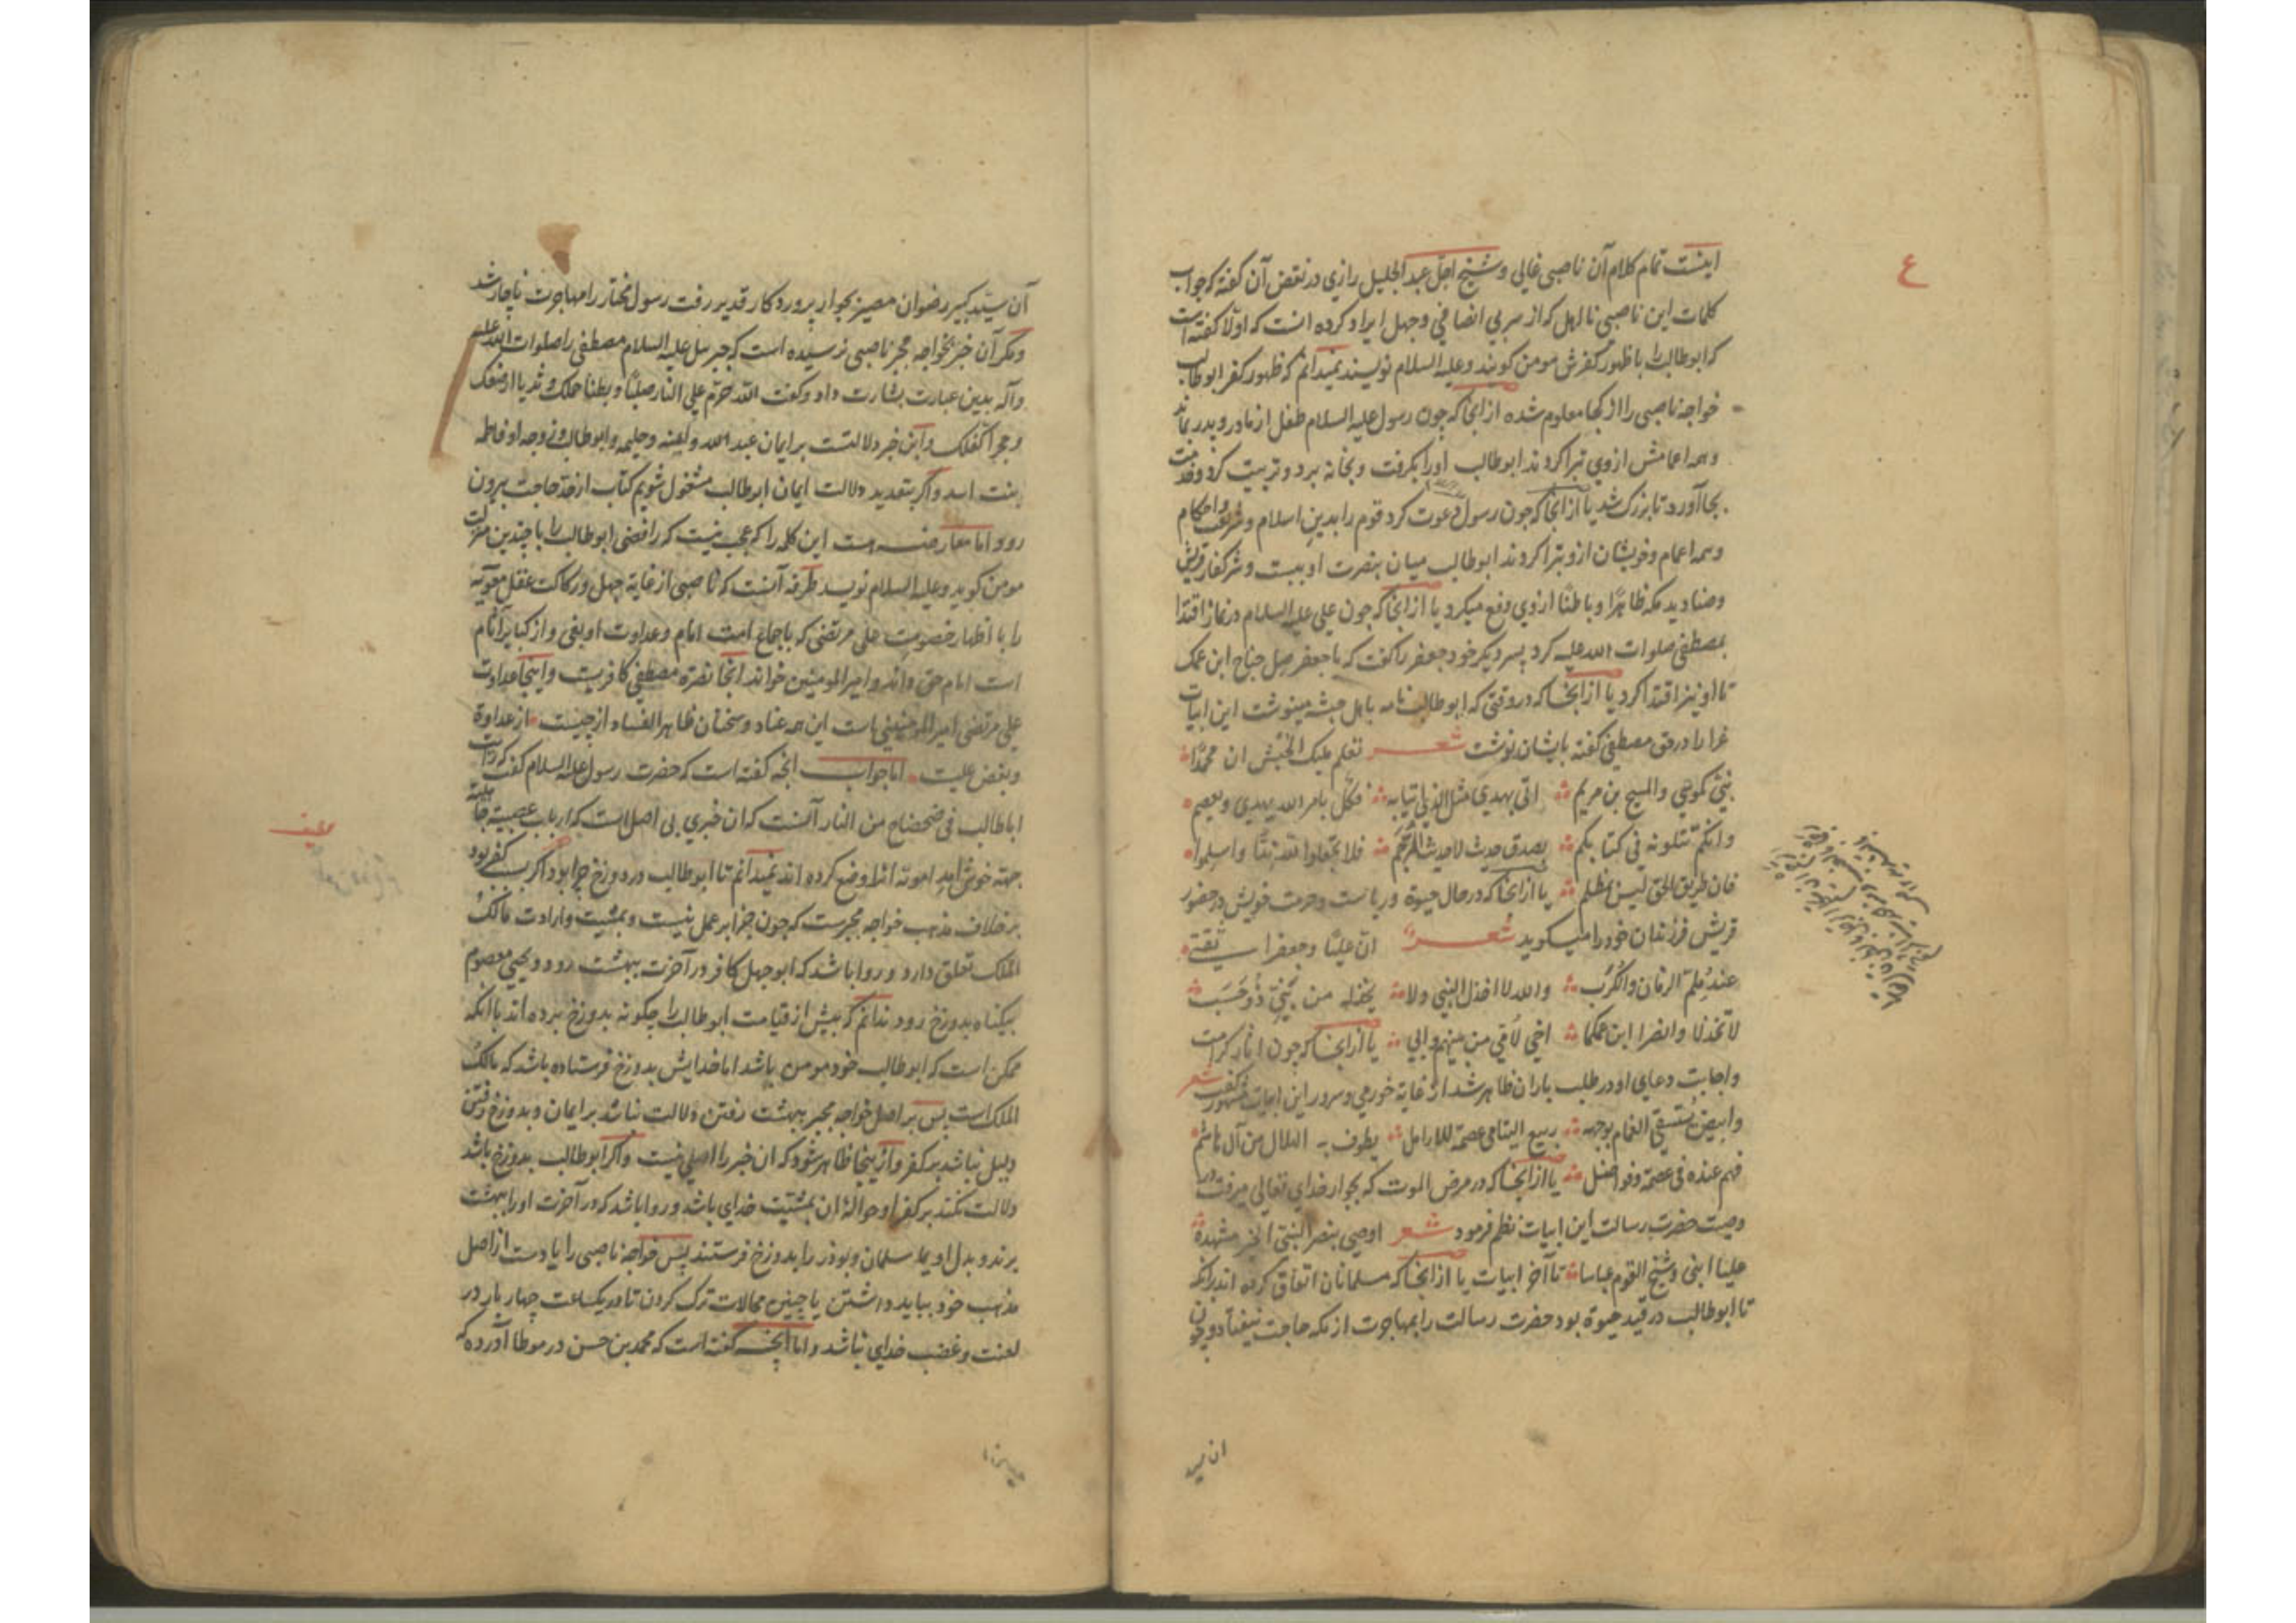 ع
اینست تمام کلام آن ناصبی غالی و شیخ اجل عبد الجلیل رازی در نقض آن گفته که جواب
کلمات این ناصبی نااهل که از سر بی انصافی و جهل ایراد کرده آنست که اولا گفته است
که ابوطالب را با ظهور کفرش مومن گویند و علیه السلام نویسند نمیدانم که ظهور کفر ابوطالب
خواجه ناصبی را از کجا معلوم شده از انجا که چون رسول علیه السلام طفل از مادر و پدر بماند
و همه اعمامش از وی تبرا کردند ابوطالب او را بکرفت و بخانه برد و تربیت کرد و خدمت
بجا آورد تا بزرک شد یا از انجا که چون رسول دعوت کرد قوم را بدین اسلام و شریعت و احکام
و همه اعمام و خویشان ازو تبرا کردند ابوطالب میان بنصرت او ببست و شر کفار قریش
و صنادید مکه ظاهرا و باطنا از وی دفع میکرد یا از انجا که چون علی علیه السلام در نماز اقتدا
بمصطفی صلوات الله علیه کرد پسر دیکر خود جعفر را گفت که یا جعفر صل جناح ابن عمک
تا او نیز اقتدا کرد یا از انجا که در وقتی که ابوطالب نامه باهل حبشه مینوشت این ابیات
غرا را در حق مصطفی گفته بایشان نوشت شعر تعلم ملیک الحبش ان محمدا
نبی کموسی والمسیح بن مریم اتی بهدی مثل الذی اتیا به فکل بامر الله یهدی و یعصم
وانکم تتلونه فی کتابکم بصدق حدیث لا حدیث المرجم فلا تجعلوا لله ندا واسلموا
فان طریق الحق لیس بمظلم یا از انجا که در حال حیوة و ریاست و حرمت خویش در حضور
قریش فرزندان خود را میکوید شعر ان علیا و جعفرا ثقتی
عند ملم الزمان والکرب والله لا اخذل النبی ولا یخذله من بنی ذو حسب
لا تخذلا وانصرا ابن عمکما اخی لامی من بینهم وابی یا از انجا که چون آثار کرامت
و اجابت دعای او در طلب باران ظاهر شد از غایة خورمی و سرور این ابیات مشهور گفت شعر
وابیض یستسقی الغمام بوجهه ربیع الیتامی عصمة للارامل یطوف به الهلال من آل هاشم
فهم عنده فی عصمة و فواضل یا از انجا که در مرض الموت که بجوار خدای تعالی میرفت در
وصیت حضرت رسالت این ابیات نظم فرمود شعر اوصی بنصر النبی الخیر مشهده
علیا ابنی و شیخ القوم عباسا تا آخر ابیات یا از انجا که مسلمانان اتفاق کرده اند برانکه
تا ابوطالب در قید حیوة بود حضرت رسالت را بمهاجرت از مکه حاجت نیفتاد و چون
ان سید
آن سید کبیر رضوان مصیر بجوار پروردکار قدیر رفت رسول مختار را مهاجرت ناچار شد
و مکر آن خبر بخواجه مجبر ناصبی نرسیده است که جبریل علیه السلام مصطفی را صلوات الله علیه
و آله بدین عبارت بشارت داد و گفت الله حرم علی النار صلبا و بطنا حملک و ثدیا ارضعک
و حجرا کفلک و این خبر دلالتست بر ایمان عبد الله و آمنه و حلیمه و ابوطالب و زوجه او فاطمه
بنت اسد و اکر بتعدید دلالت ایمان ابوطالب مشغول شویم کتاب از حد حاجت بیرون
رود اما معارضه این کلمه را که عجب نیست که رافضی ابوطالب را با چندین منزلت
مومن کوید و علیه السلام نویسد طرفه آنست که ناصبی از غایة جهل و رکاکت عقل معویه
را با اظهار خصومت علی مرتضی که باجماع امت امام و عداوت او بغی و از کبایر آثام
است امام حق داند و امیر المومنین خواند انجا نصرة مصطفی کافریست و اینجا عداوت
علی مرتضی امیر المومنینی است این همه عناد و سخنان ظاهر الفساد از چیست از عداوة
و بغض علیست اما جواب انچه گفته است که حضرت رسول علیه السلام گفت که رایت
اباطالب فی ضحضاح من النار آنست که ان خبری بی اصل است که ارباب عصبیة جاهلیة
جهته خوش آمد امویه انرا وضع کرده اند نمیدانم تا ابوطالب در دوزخ چرا بود اکر بسبب کفر بود
بر خلاف مذهب خواجه مجبرست که چون جزا بر عمل نیست و بمشیت و ارادت مالک
الملک تعلق دارد و روا باشد که ابوجهل کافر در آخرت ببهشت رود و یحیی معصوم
بیکناه بدوزخ رود ندانم که پیش از قیامت ابوطالب را چکونه بدوزخ برده اند با انکه
ممکن است که ابوطالب خود مومن باشد اما خدایش بدوزخ فرستاده باشد که مالک
الملک است پس بر اصل خواجه مجبر ببهشت رفتن دلالت نباشد بر ایمان و بدوزخ رفتن
دلیل نباشد بر کفر و از ینجا ظاهر شود که ان خبر را اصلی نیست و اکر ابوطالب بدوزخ باشد
دلالت نکند بر کفر او حوالة ان بمشیت خدای باشد و روا باشد که در آخرت او را ببهشت
برند و بدل او بمله سلمان و بوذر را بدوزخ فرستند پس خواجه ناصبی را یا دست از اصل
مذهب خود بباید داشتن یا چنین محالات ترک کردن تا در یکساعت چهار بار در
لعنت و غضب خدای نباشد و اما انچه گفته است که محمد بن حسن در موطا آورده که